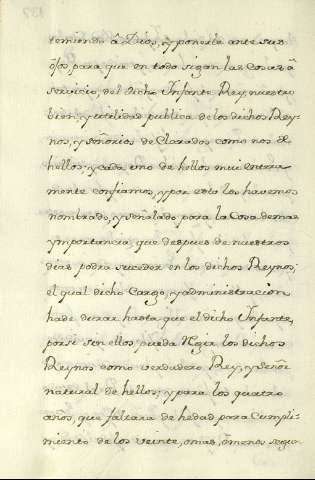 temiendo â Dios, y ponerle ante sus
ojos, para que en todo sigan las Cosas â
servicio, del dicho Infante Rey, nuestro
bien, y utilidad publica de los dichos Rey-
nos, y señorios de Clarados como nos de
hellos; y cada uno de hellos mui entera
mente confiamos, y por esto los havemos
nombrado, y señalado para la Cosa de mas
ymportancia, que despues de nuestros
dias podra suceder en los dichos Reynos;
el qual dicho Cargo, y administracion
hade durar hasta que el dicho Infante,
por si sin ellos, pueda Regir los dichos
Reynos como verdadero Rey, y señor
natural de hellos; y para los quatro
años, que faltara de hedad para Cumpli-
miento de los veinte, omas, ômenos segun